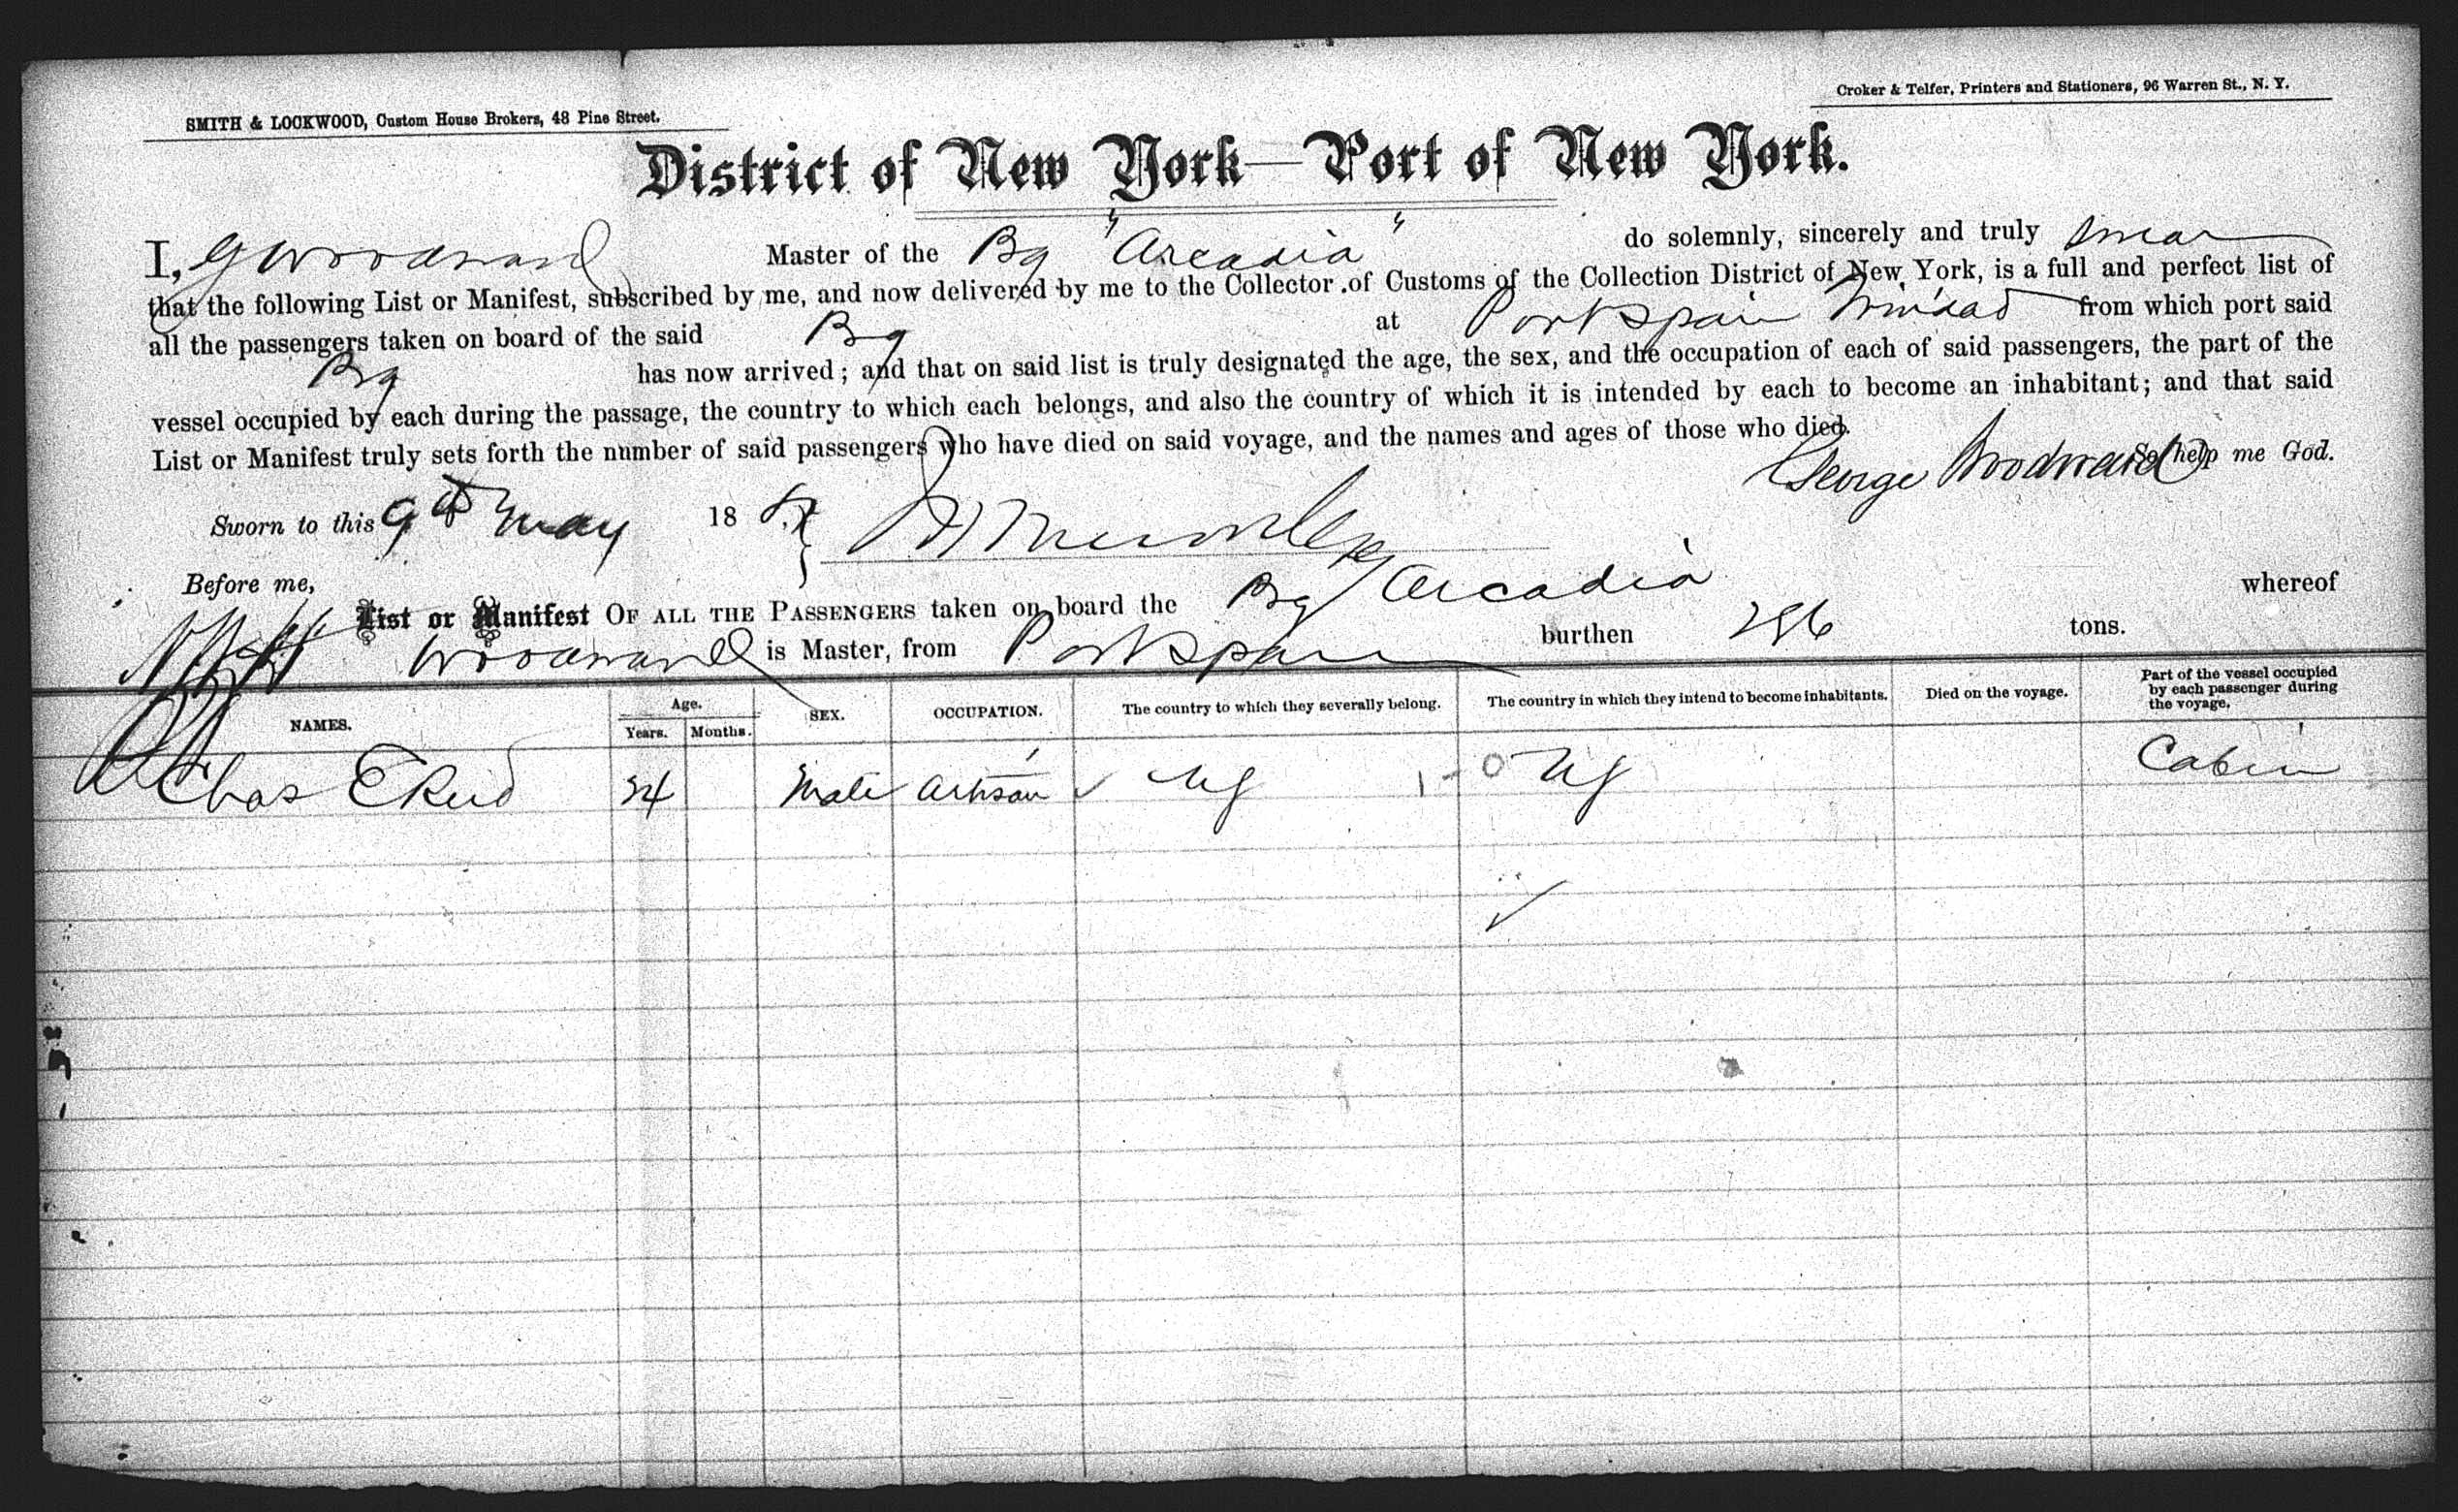 SMITH & LOCKWOOD, Custom House Brokers, 48 Pine Street.
Croker & Telfer, Printers and Stationers, 96 Warren St., N. Y.
District of New York—Port of New York.
I, G Woodward Master of the Bg "Arcadia" do solemnly, sincerely and truly swear
that the following List or Manifest, subscribed by me, and now delivered by me to the Collector of Customs of the Collection District of New York, is a full and perfect list of
all the passengers taken on board of the said Bg at Port Spain Trinidad from which port said
Bg has now arrived; and that on said list is truly designated the age, the sex, and the occupation of each of said passengers, the part of the
vessel occupied by each during the passage, the country to which each belongs, and also the country of which it is intended by each to become an inhabitant; and that said
List or Manifest truly sets forth the number of said passengers who have died on said voyage, and the names and ages of those who died.
George Woodward So help me God.
Sworn to this 9th May 18
Before me,
List or Manifest OF ALL THE PASSENGERS taken on board the Bg Arcadia whereof
Woodward is Master, from Port Spain burthen 286 tons.
NAMES. Age. Years. Months. SEX. OCCUPATION. The country to which they severally belong. The country in which they intend to become inhabitants. Died on the voyage. Part of the vessel occupied by each passenger during the voyage.
Chas E Reid 34 Male Artisan Cabin